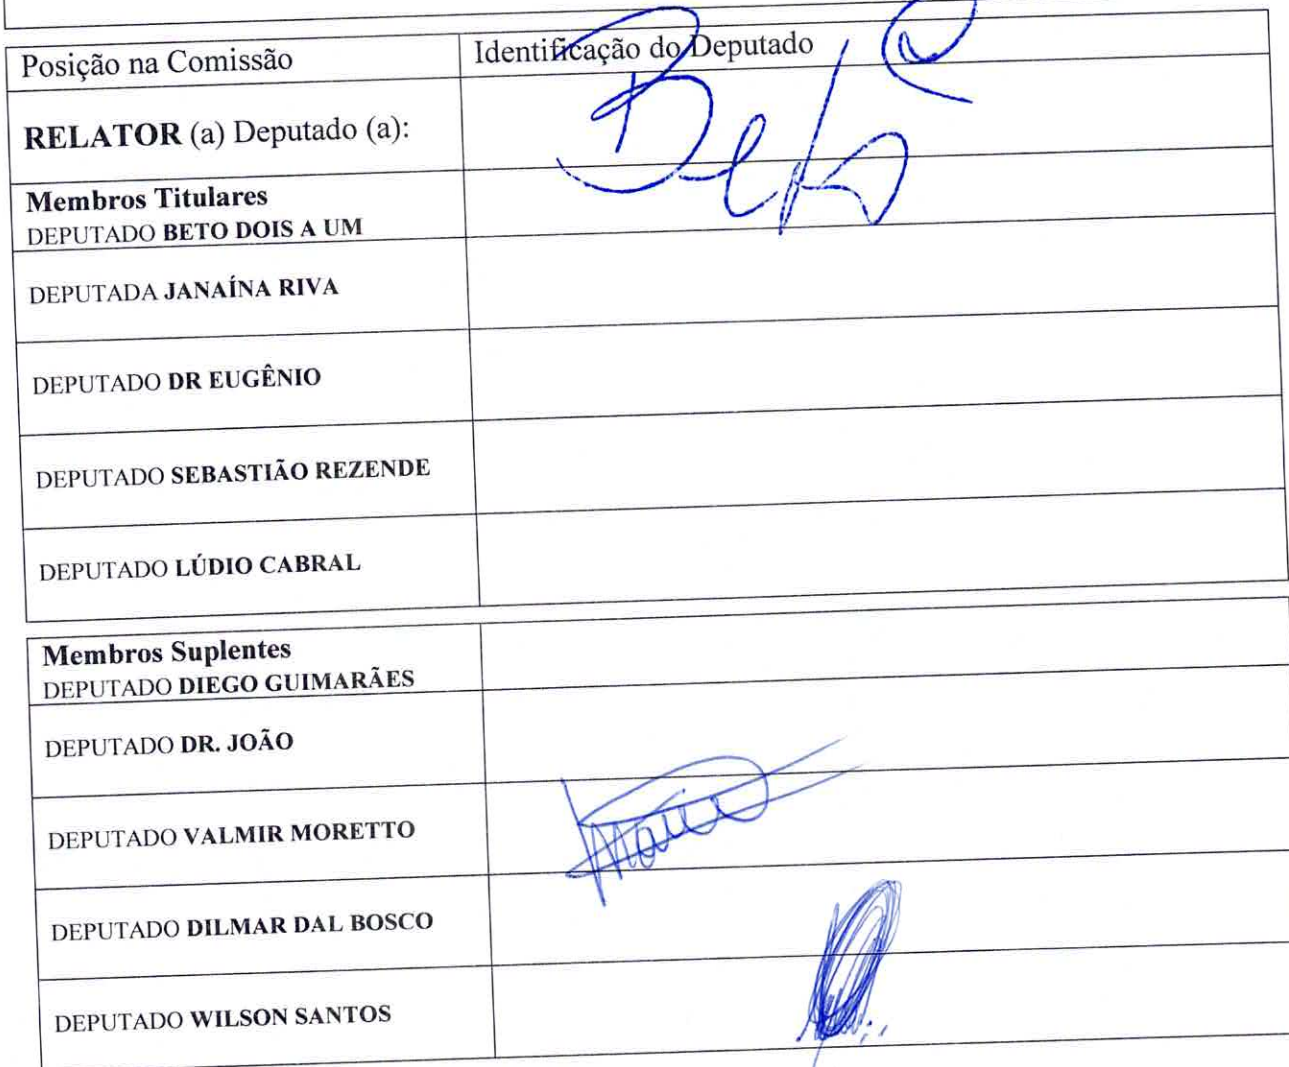 Posição na Comissão
Identificação do Deputado
RELATOR (a) Deputado (a):
Beto
Membros Titulares
DEPUTADO BETO DOIS A UM
DEPUTADA JANAÍNA RIVA
DEPUTADO DR EUGÊNIO
DEPUTADO SEBASTIÃO REZENDE
DEPUTADO LÚDIO CABRAL
Membros Suplentes
DEPUTADO DIEGO GUIMARÃES
DEPUTADO DR. JOÃO
DEPUTADO VALMIR MORETTO
DEPUTADO DILMAR DAL BOSCO
DEPUTADO WILSON SANTOS